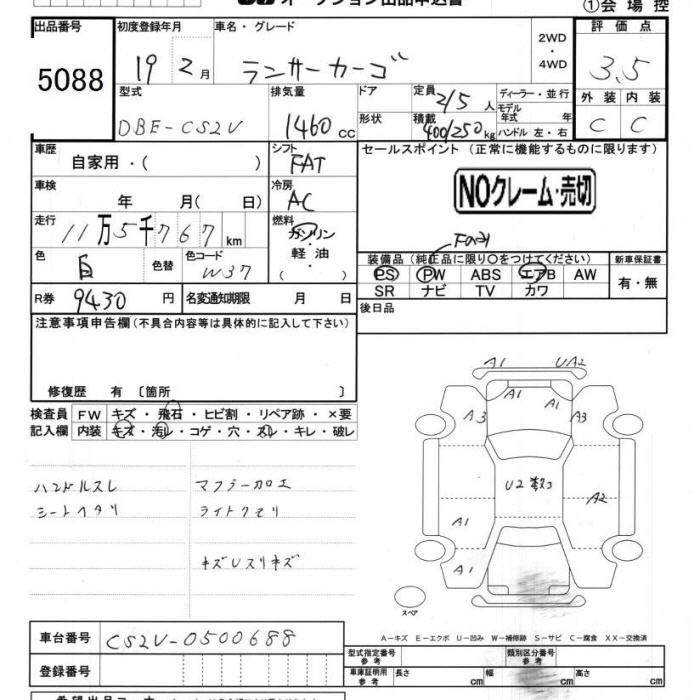 オークション出品申込書
①会場控
出品番号 初度登録年月 車名・グレード 2WD ・ 4WD 評価点
5088 19年2月 ランサーカーゴ 3.5
型式 排気量 ドア 定員 2/5人 ディーラー・並行 外装 内装
DBE-CS2V 1460cc 形状 積載 400/250kg モデル年式 年 ハンドル 左・右 C C
車歴 自家用・( ) シフト FAT セールスポイント(正常に機能するものに限ります)
車検 年 月( 日) 冷房 AC NOクレーム・売切
走行 11万5千767km 燃料 ガソリン・軽油・( )
色 白 色替 色コード W37 装備品(純正品に限り○をつけてください) 新車保証書
PS PW ABS エアB AW 有・無
R券 9430円 名変通知期限 月 日 SR ナビ TV カワ
注意事項申告欄(不具合内容等は具体的に記入して下さい) 後日品
修復歴 有〔箇所 〕
検査員 FW キズ・飛石・ヒビ割・リペア跡・×要
記入欄 内装 キズ・汚レ・コゲ・穴・スレ・キレ・破レ
A1 UA2
A1 A1
A3 A3
ハンドルスレ マフラー加工
シートヘタリ ライトクモリ
U2 A2
A1
キズUスリキズ
A1
スペア
A-キズ E-エクボ U-凹み W-補修跡 S-サビ C-腐食 XX-交換済
車台番号 CS2V-0500688
型式指定番号 参考 類別区分番号 参考
登録番号 車庫証明用 参考 長さ cm 幅 cm 高さ cm